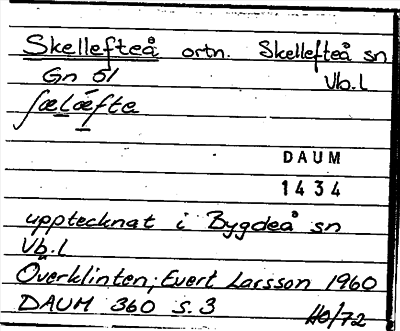 Skellefteå ortn. Skellefteå sn
Gn 61 Vb.l
ʃælǽfta
DAUM
1434
upptecknat i Bygdeå sn
Vb.l
Överklinten; Evert Larsson 1960
DAUM 360 s.3 HO/72